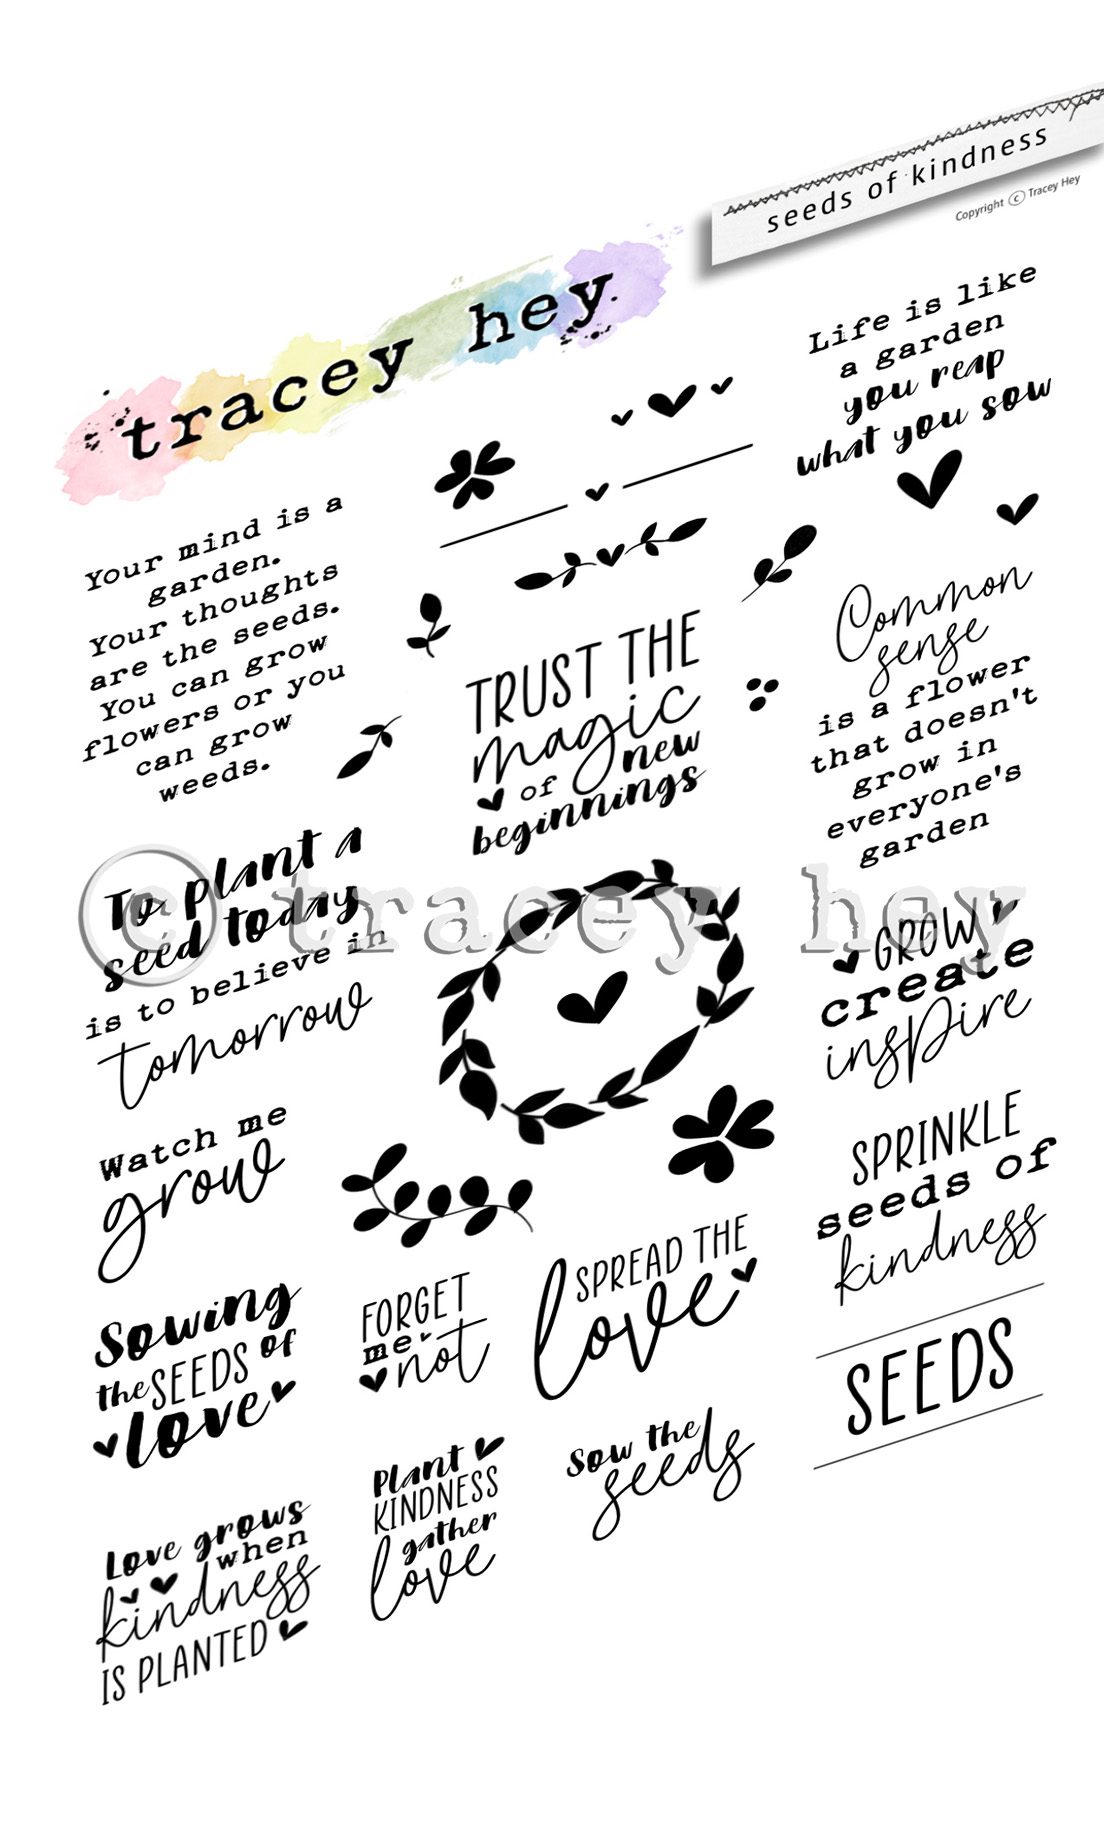 seeds of kindness
Copyright © Tracey Hey
tracey hey
Life is like
a garden
you reap
what you sow
Your mind is a
garden.
Your thoughts
are the seeds.
You can grow
flowers or you
can grow
weeds.
TRUST THE
magic
of new
beginnings
Common
sense
is a flower
that doesn't
grow in
everyone's
garden
To plant a
seed today
is to believe in
tomorrow
© tracey hey
GROW
create
inspire
Watch me
grow
SPRINKLE
seeds of
kindness
Sowing
the SEEDS of
love
FORGET
me
not
SPREAD THE
love
SEEDS
Plant
KINDNESS
gather
love
Sow the
seeds
Love grows
when
kindness
IS PLANTED